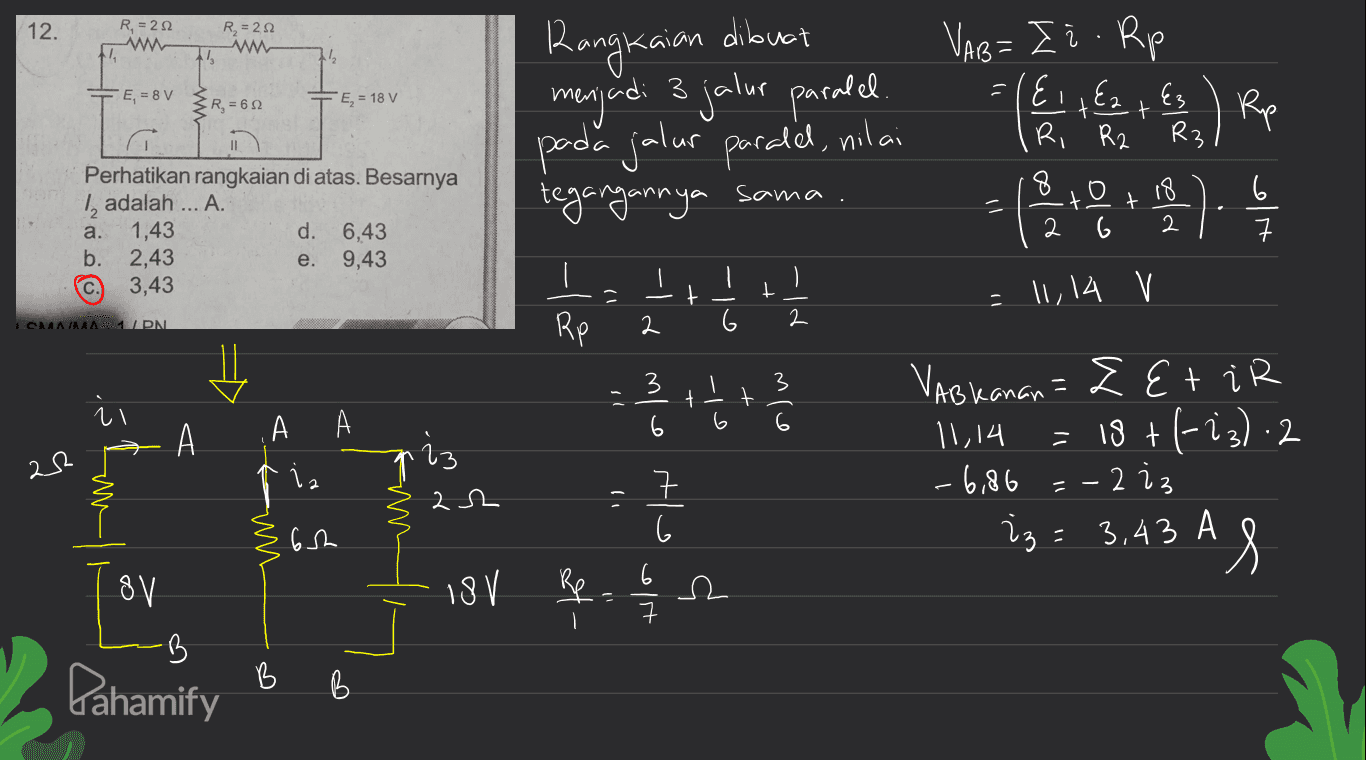 12.
R₁ = 2 Ω
R₂ = 2 Ω
I₁
I₃
I₂
E₁ = 8 V
R₃ = 6 Ω
E₂ = 18 V
I
II
Perhatikan rangkaian di atas. Besarnya
I₂ adalah ... A.
a. 1,43
d. 6,43
b. 2,43
e. 9,43
c. 3,43
1 / PN
i1
A
A
A
2Ω
i2
i3
2Ω
6Ω
8V
18V
B
B
B
Rangkaian dibuat
menjadi 3 jalur paralel.
pada jalur paralel, nilai
tegangannya sama.
1/Rp = 1/2 + 1/6 + 1/2
= 3/6 + 1/6 + 3/6
= 7/6
Rp/1 = 6/7 Ω
VAB = Σ i · Rp
= (ε1/R1 + ε2/R2 + ε3/R3) Rp
= (8/2 + 0/6 + 18/2) · 6/7
= 11,14 V
VAB kanan = Σ ε + iR
11,14 = 18 + (-i3) · 2
-6,86 = -2 i3
i3 = 3,43 A
Pahamify